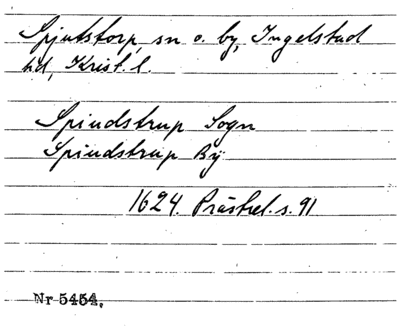 Spjutstorp, sn o. by, Ingelstad
hd, Krist. l.
Spiudstrup Sogn
Spiudstrup Bÿ
1624. Prästrel. s. 91
Nr 5454.